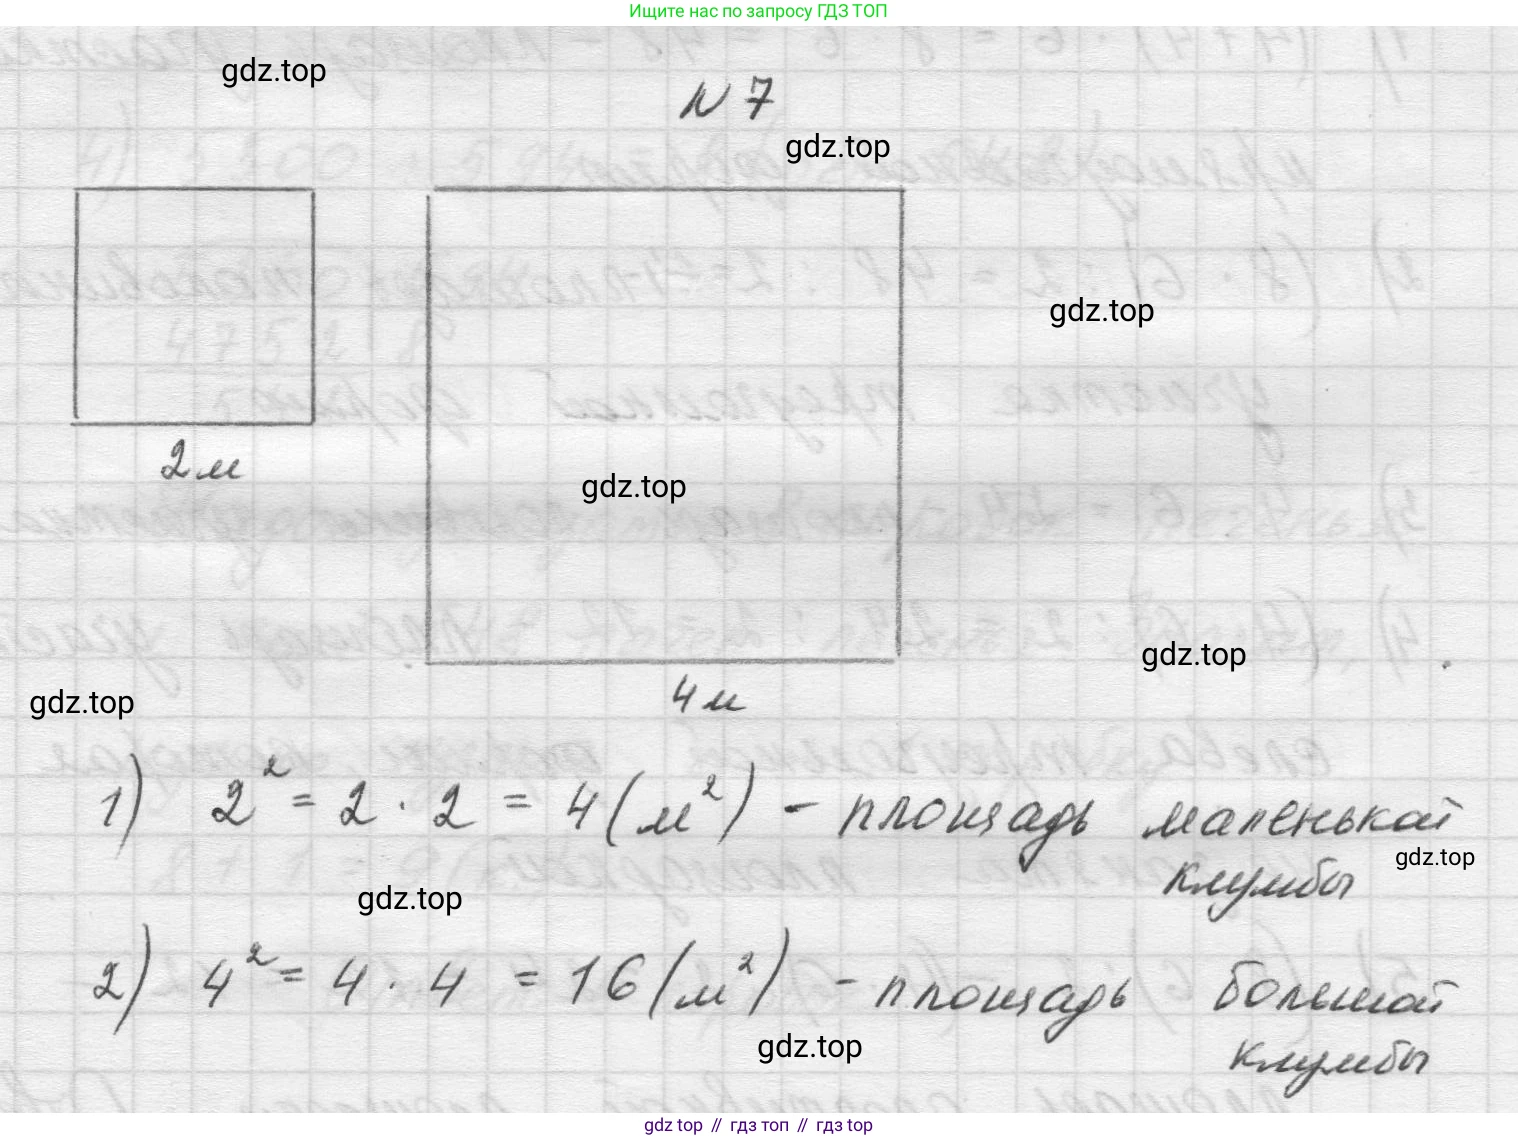 Ищите нас по запросу ГДЗ ТОП
gdz.top
N 7
gdz.top
gdz.top
2 м
gdz.top
gdz.top
4 м
gdz.top
1) 2² = 2 · 2 = 4 (м²) - площадь маленькой
клумбы
gdz.top
gdz.top
2) 4² = 4 · 4 = 16 (м²) - площадь большой
клумбы
gdz.top
gdz top // гдз топ // гдз top